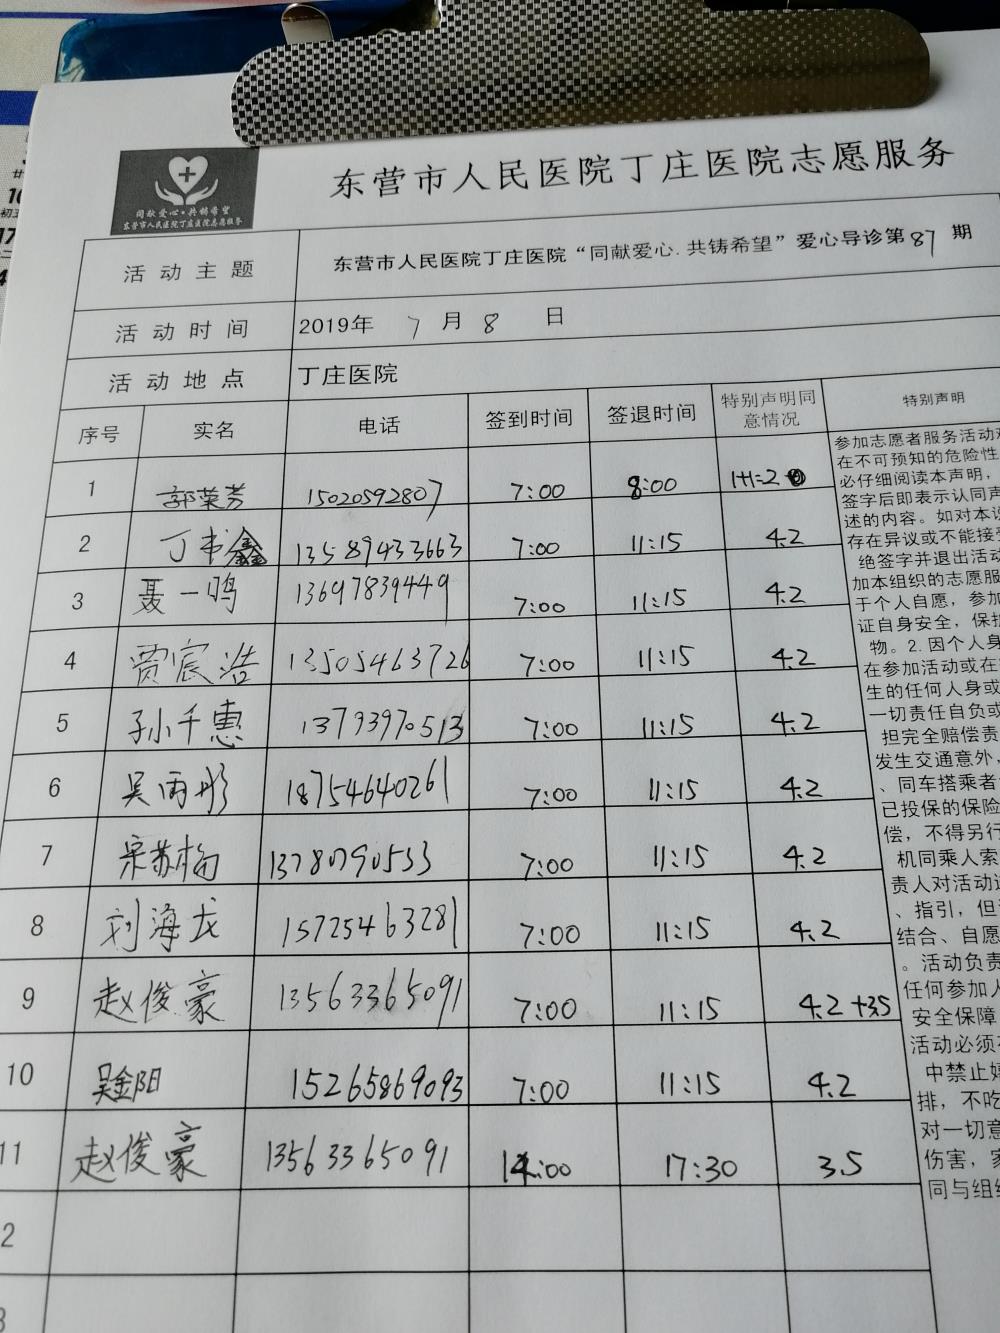 东营市人民医院丁庄医院志愿服务
同献爱心·共铸希望
东营市人民医院丁庄医院志愿服务
活动主题 东营市人民医院丁庄医院“同献爱心.共铸希望”爱心导诊第87期
活动时间 2019年 7月8日
活动地点 丁庄医院
序号 实名 电话 签到时间 签退时间 特别声明同意情况 特别声明
1 郭荣芳 15020592807 7:00 8:00 1+1=2
2 丁韦鑫 13589433663 7:00 11:15 4.2
3 聂一鸣 13697839449 7:00 11:15 4.2
4 贾宸浩 13505463726 7:00 11:15 4.2
5 孙千惠 13793970513 7:00 11:15 4.2
6 吴雨彤 18754640261 7:00 11:15 4.2
7 宋苏梅 13780790533 7:00 11:15 4.2
8 刘海龙 15725463281 7:00 11:15 4.2
9 赵俊豪 13563365091 7:00 11:15 4.2+3.5
10 吴金阳 15265869093 7:00 11:15 4.2
11 赵俊豪 13563365091 14:00 17:30 3.5
参加志愿者服务活动
在不可预知的危险性
必仔细阅读本声明，
签字后即表示认同声
述的内容。如对本说
存在异议或不能接受
绝签字并退出活动
加本组织的志愿服
于个人自愿，参加
证自身安全，保护
物。2.因个人身
在参加活动或在
生的任何人身或
一切责任自负或
担完全赔偿责
发生交通意外，
、同车搭乘者
已投保的保险
偿，不得另行
机同乘人索
责人对活动进
、指引，但
结合、自愿
。活动负责
任何参加人
安全保障
活动必须
中禁止
排，不吃
对一切意
伤害，家
同与组织